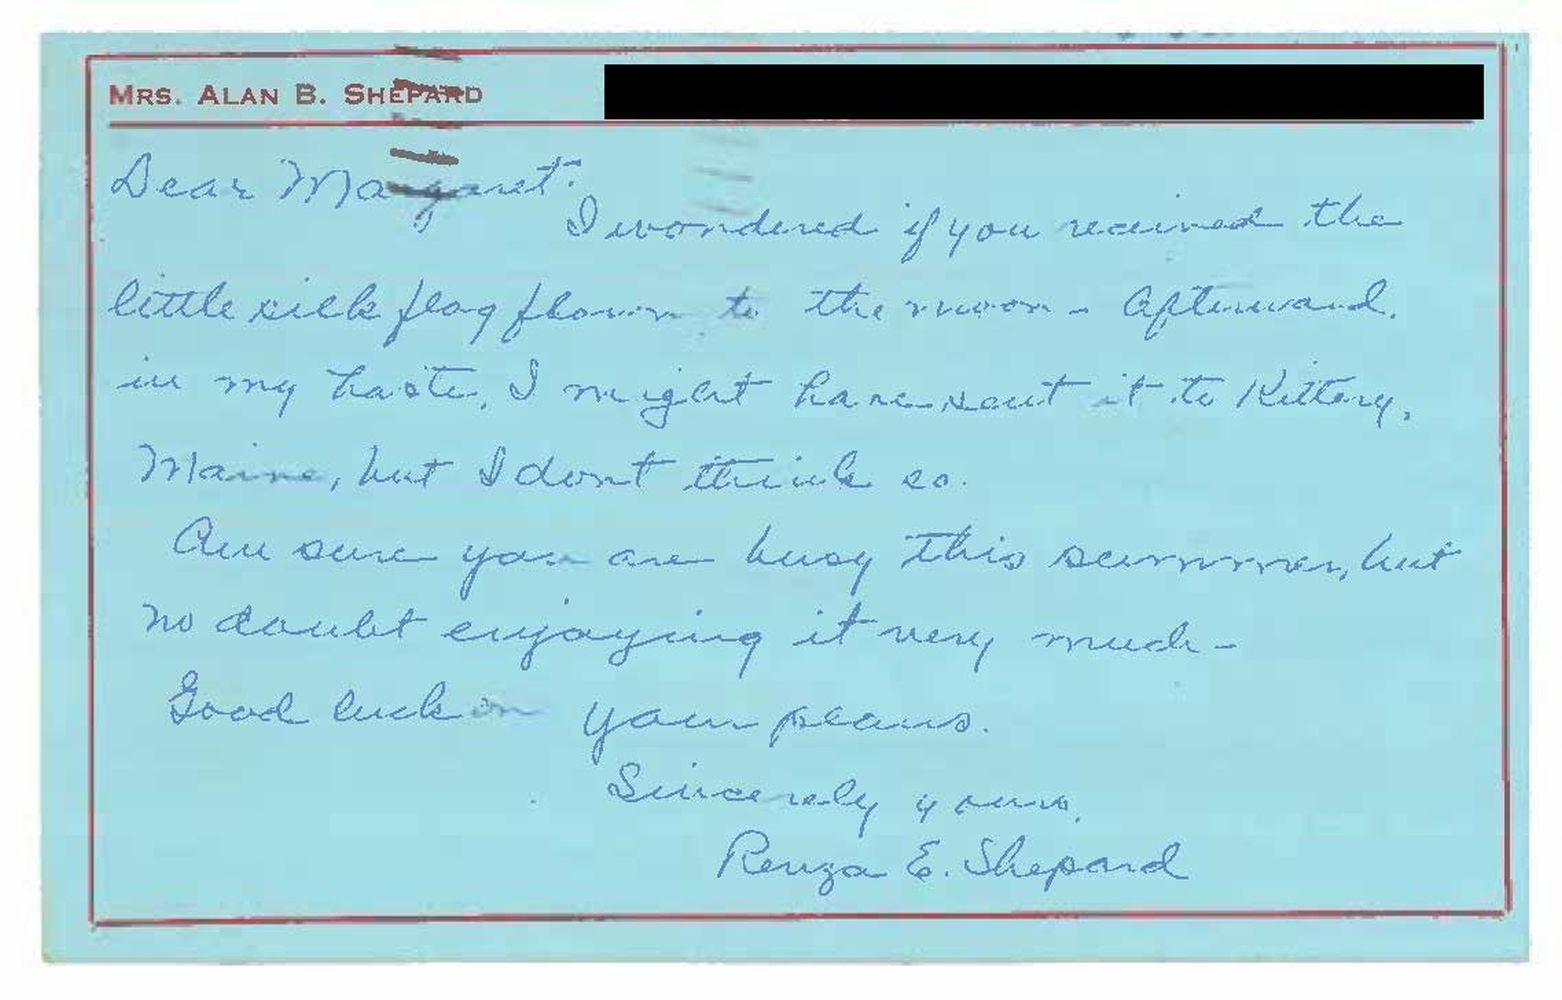 MRS. ALAN B. SHEPARD
Dear Margaret:
I wondered if you received the
little silk flag flown to the moon - Afterward,
in my haste, I might have sent it to Kittery,
Maine, but I dont think so.
Am sure you are busy this summer, but
no doubt enjoying it very much -
Good luck on your plans.
Sincerely yours,
Renza E. Shepard